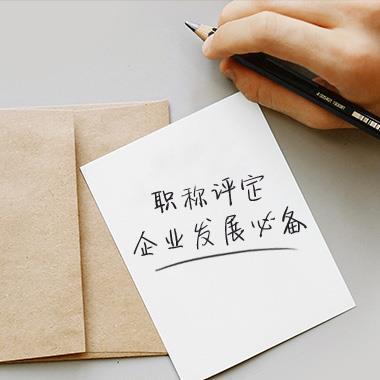 职称评定
企业发展必备